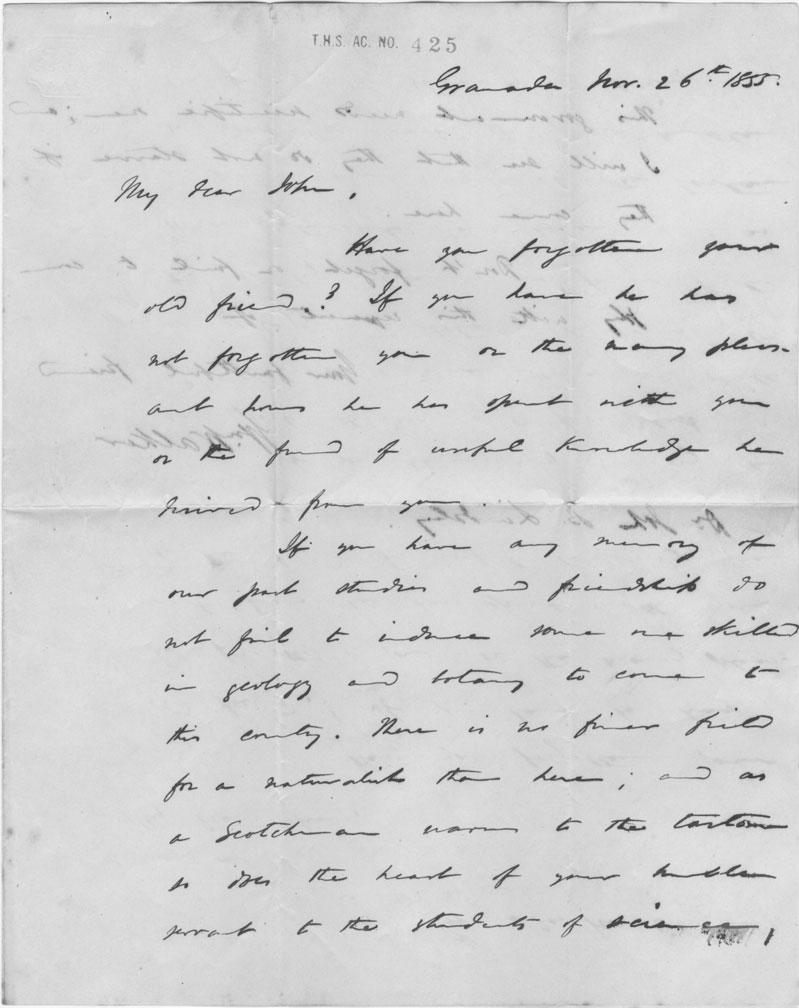 T.H.S. AC. NO. 425
Granada Nov. 26th 1855.
My dear John,
Have you forgotten your
old friend? If you have he has
not forgotten you or the many pleas-
ant hours he has spent with you
or the fund of useful knowledge he
derived from you.
If you have any memory of
our past studies and friendship do
not fail to induce some one skilled
in geology and botany to come to
this country. There is no finer field
for a naturalist than here; and as
a Scotchman warms to the tartan
so does the heart of your humble
servant to the students of science